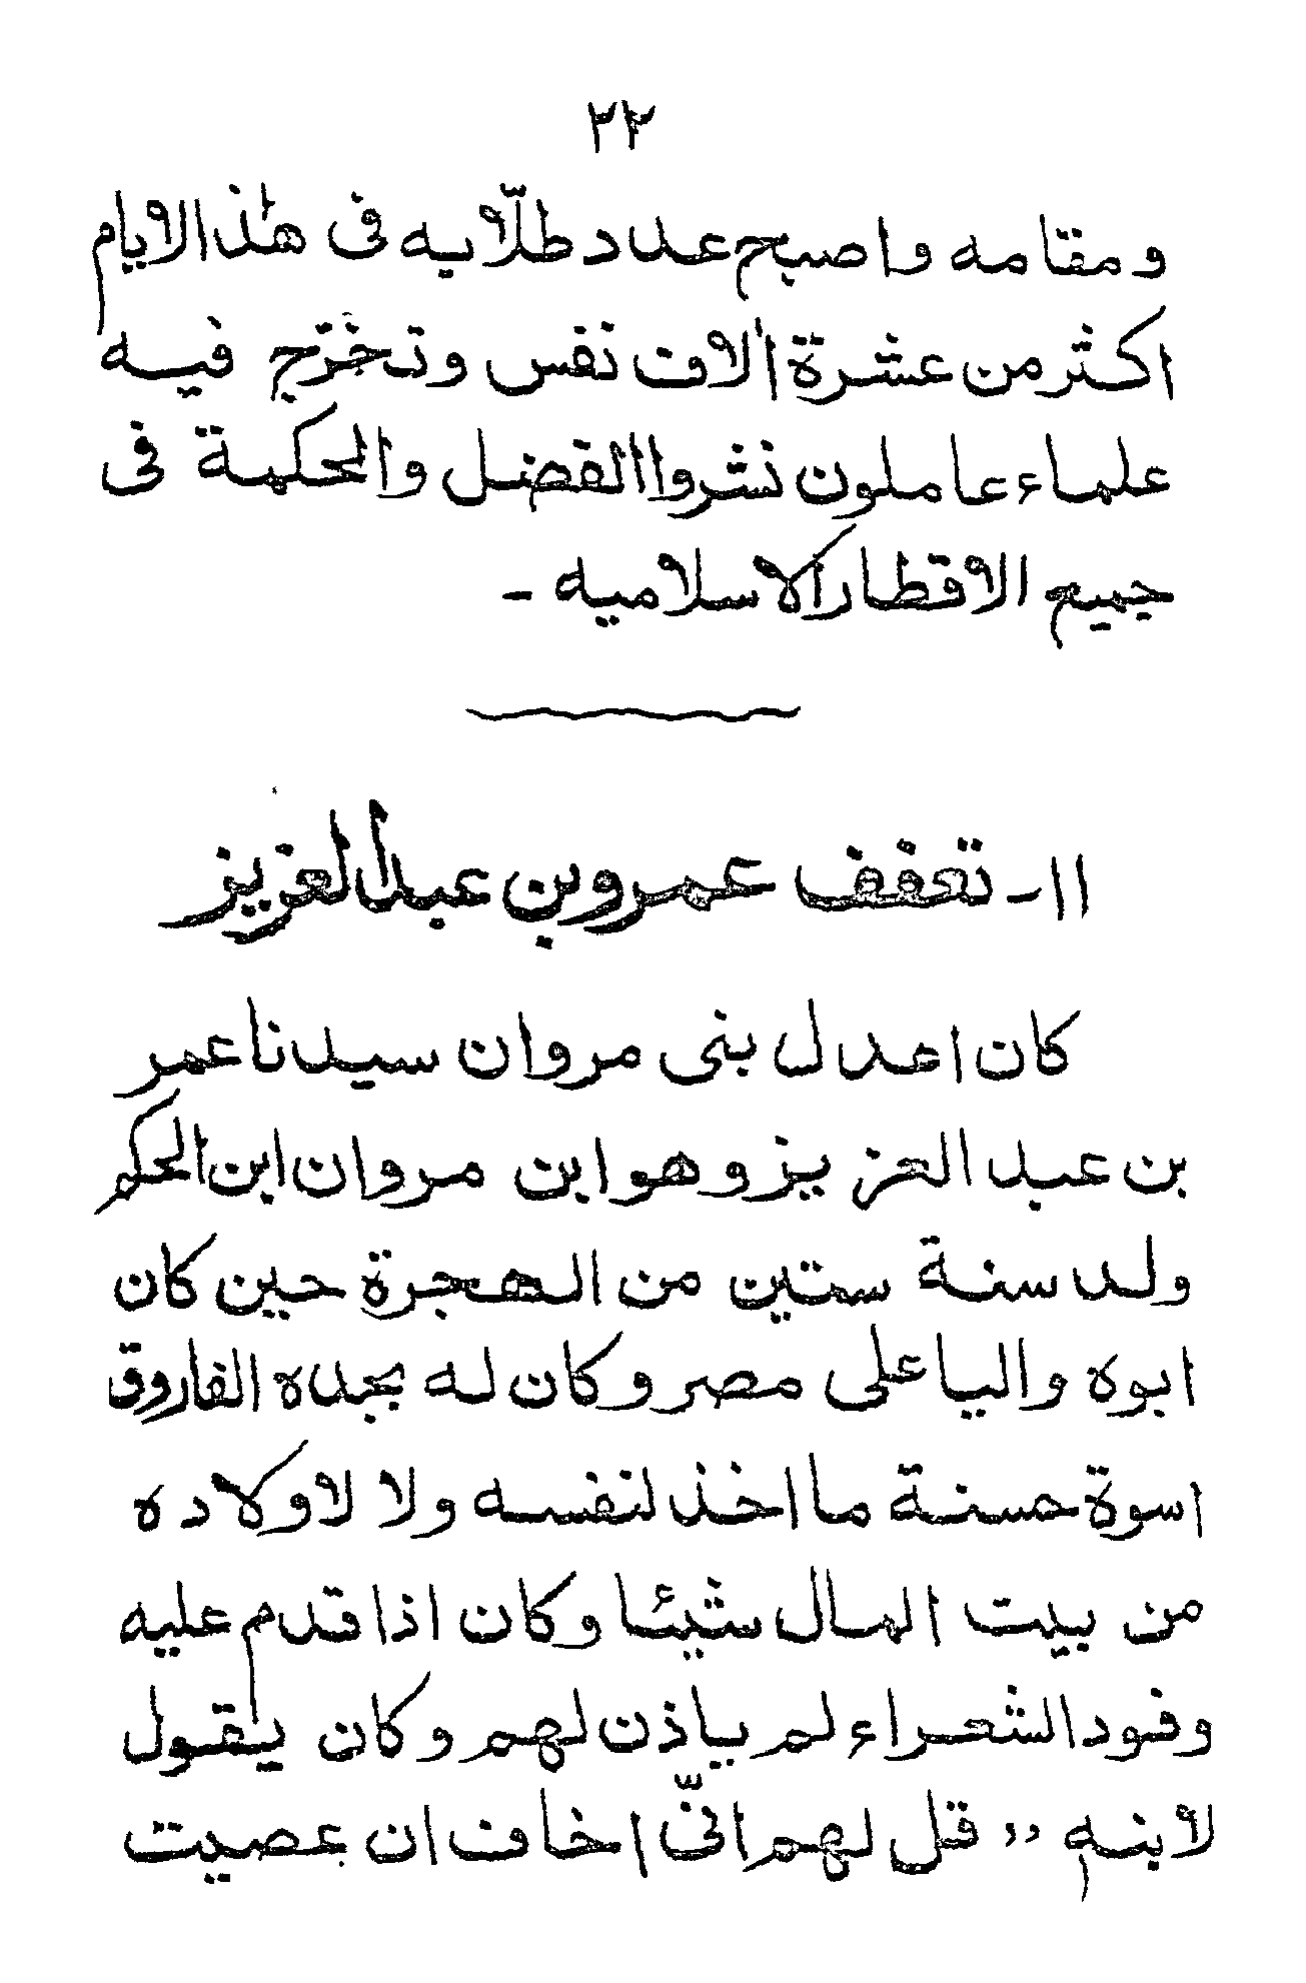 ٢٢
ومقامه واصبح عدد طلّابه فى هٰذا الايام
اكثر من عشرة اٰلاف نفس وتخرّج فيه
علماء عاملون نشروا الفضل والحكمة فى
جميع الاقطار الاسلاميه -
١١- تعفف عمرو بن عبد العزيز
كان اعدل بنى مروان سيدنا عمر
بن عبد العزيز وهو ابن مروان ابن الحكم
ولد سنة ستين من الهجرة حين كان
ابوه واليا على مصر وكان له بجده الفاروق
اسوة حسنة ما اخذ لنفسه ولا لاولاده
من بيت المال شيئا وكان اذا قدم عليه
وفود الشعراء لم ياذن لهم وكان يقول
لابنه ,, قل لهم انىّ اخاف ان عصيت